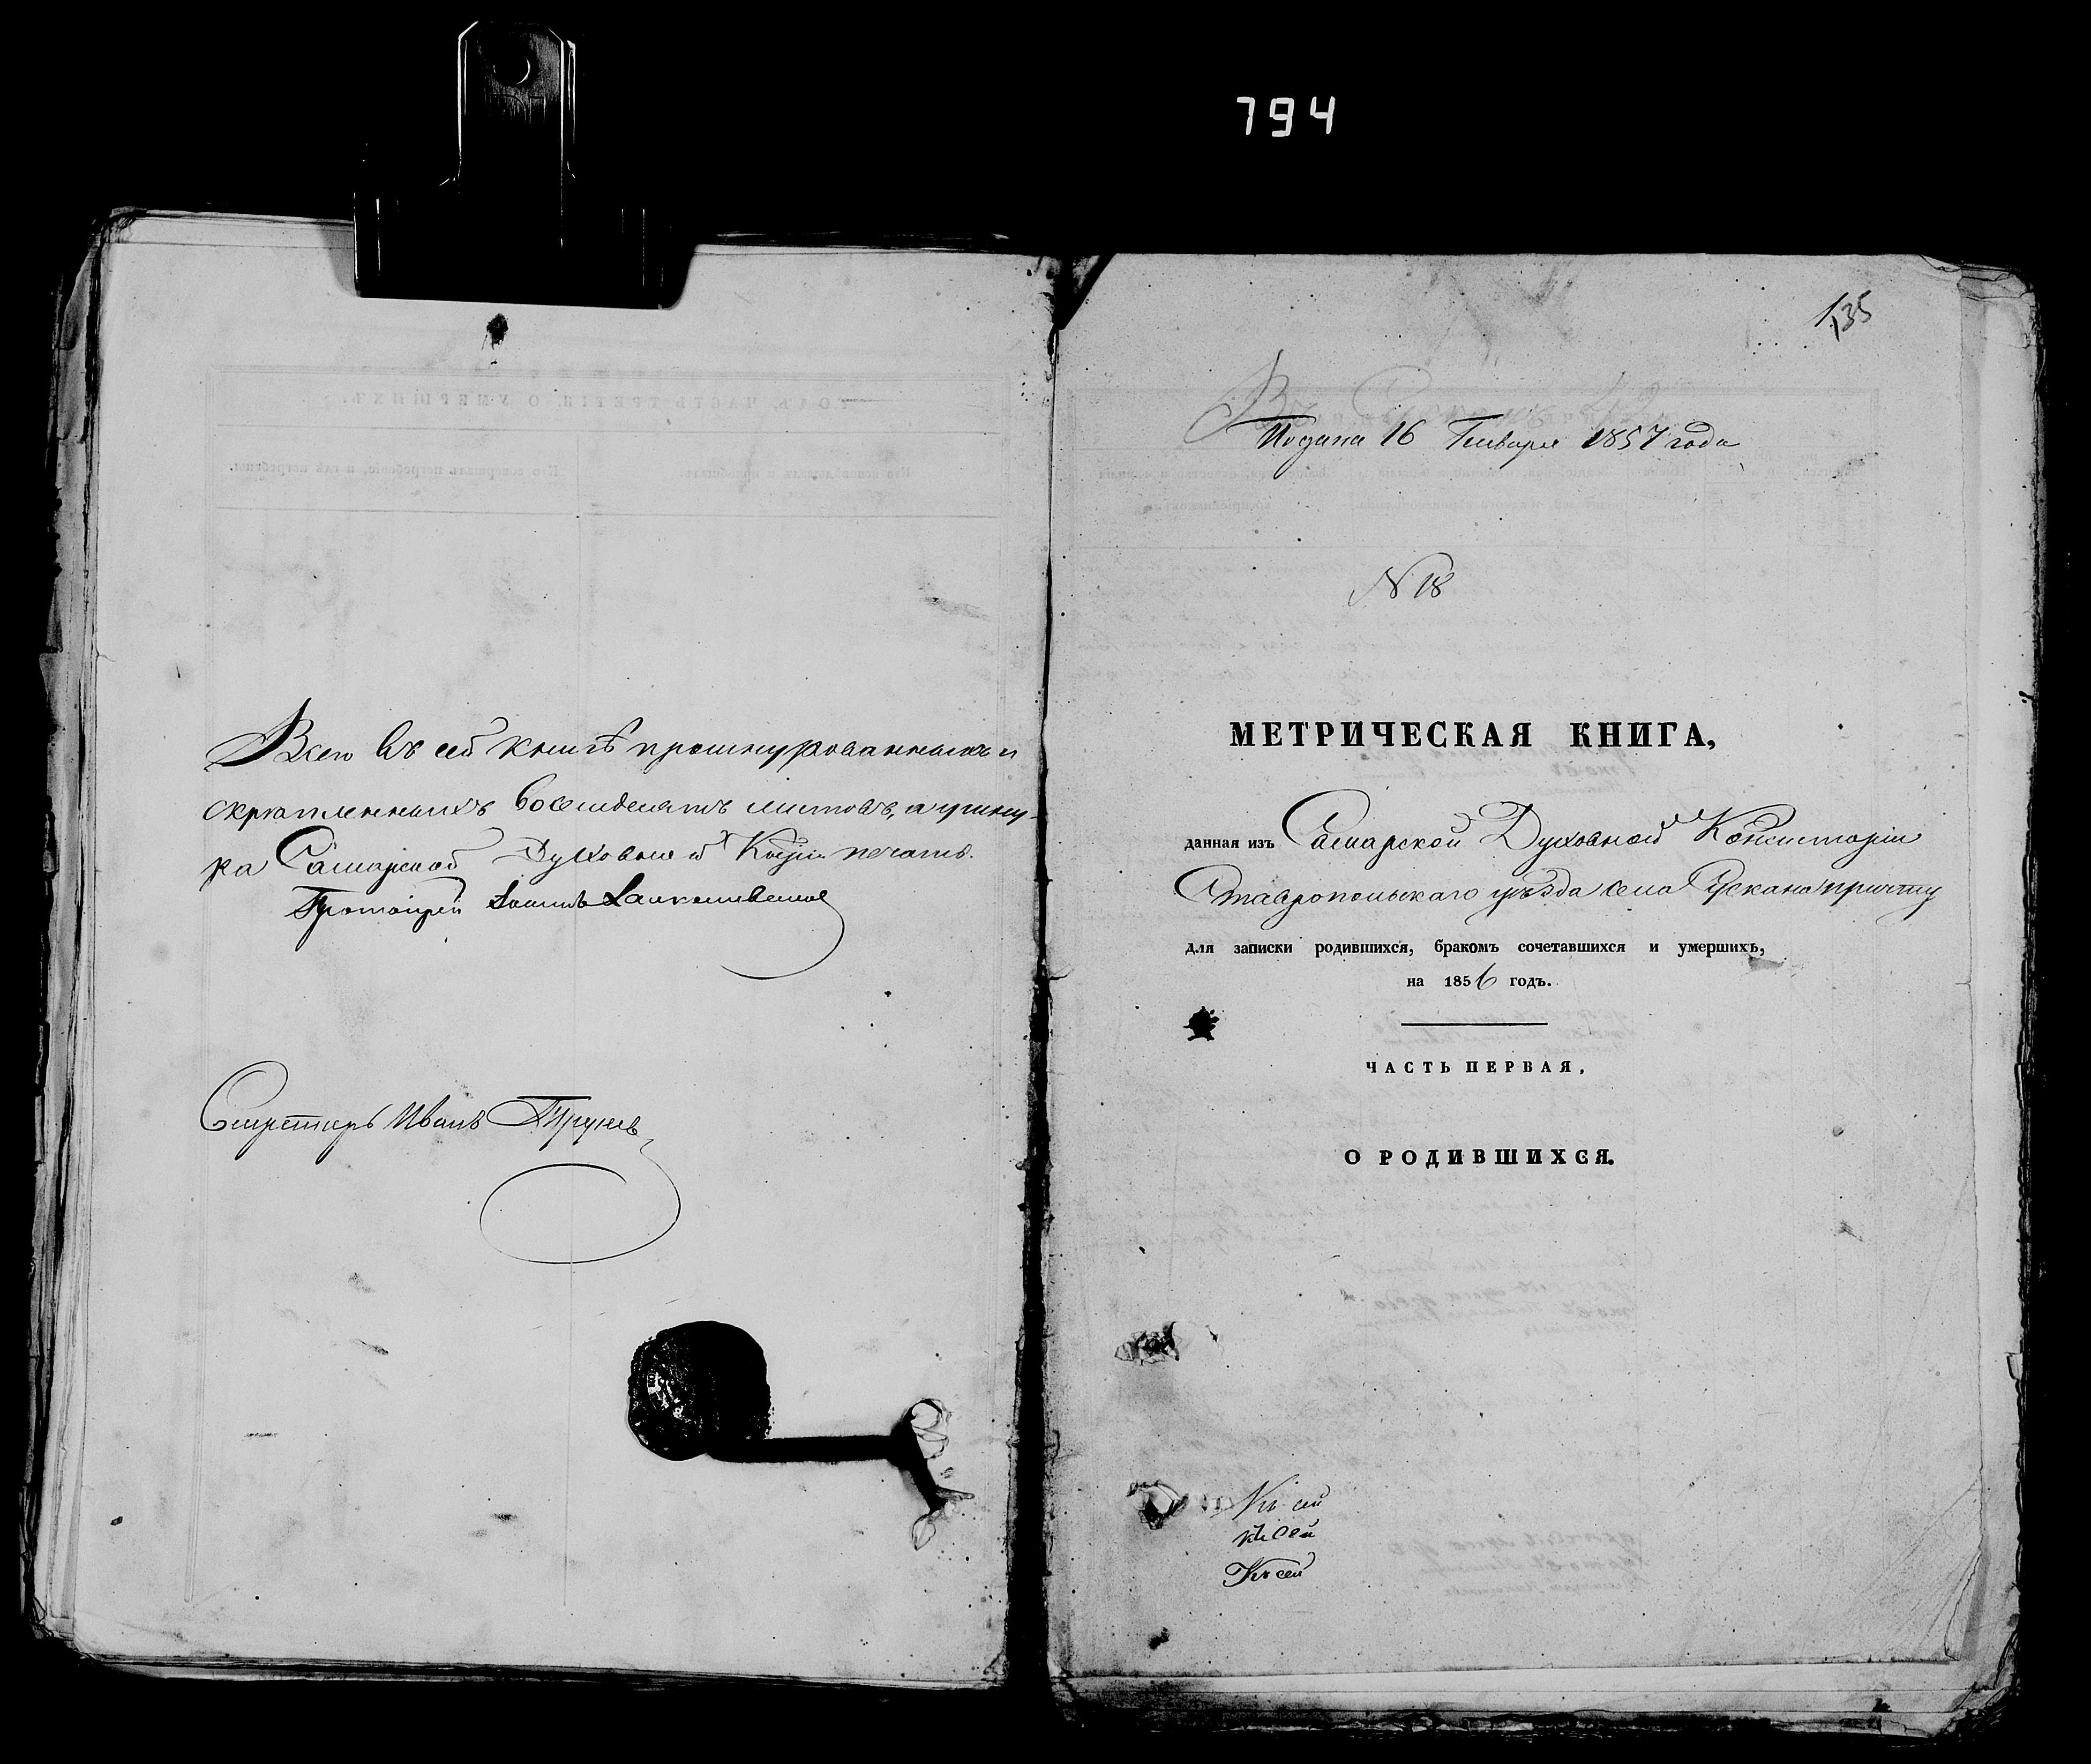 794
Всего въ сей книгѣ прошнурованныхъ и
скрѣпленныхъ восемдесятъ листовъ, а у шну-
ра Самарской Духовной Консрiи печать.
Протоiерей Iоаннъ
Секретарь Иванъ
135
Подана 16 Генваря 1857 года
N 18
МЕТРИЧЕСКАЯ КНИГА,
данная изъ Самарской Духовной Консисторiи
Ставропольскаго уѣзда села Ускана причту
для записки родившихся, бракомъ сочетавшихся и умершихъ,
на 1856 годъ.
ЧАСТЬ ПЕРВАЯ,
О РОДИВШИХСЯ.
Къ сей
къ сей
Къ сей